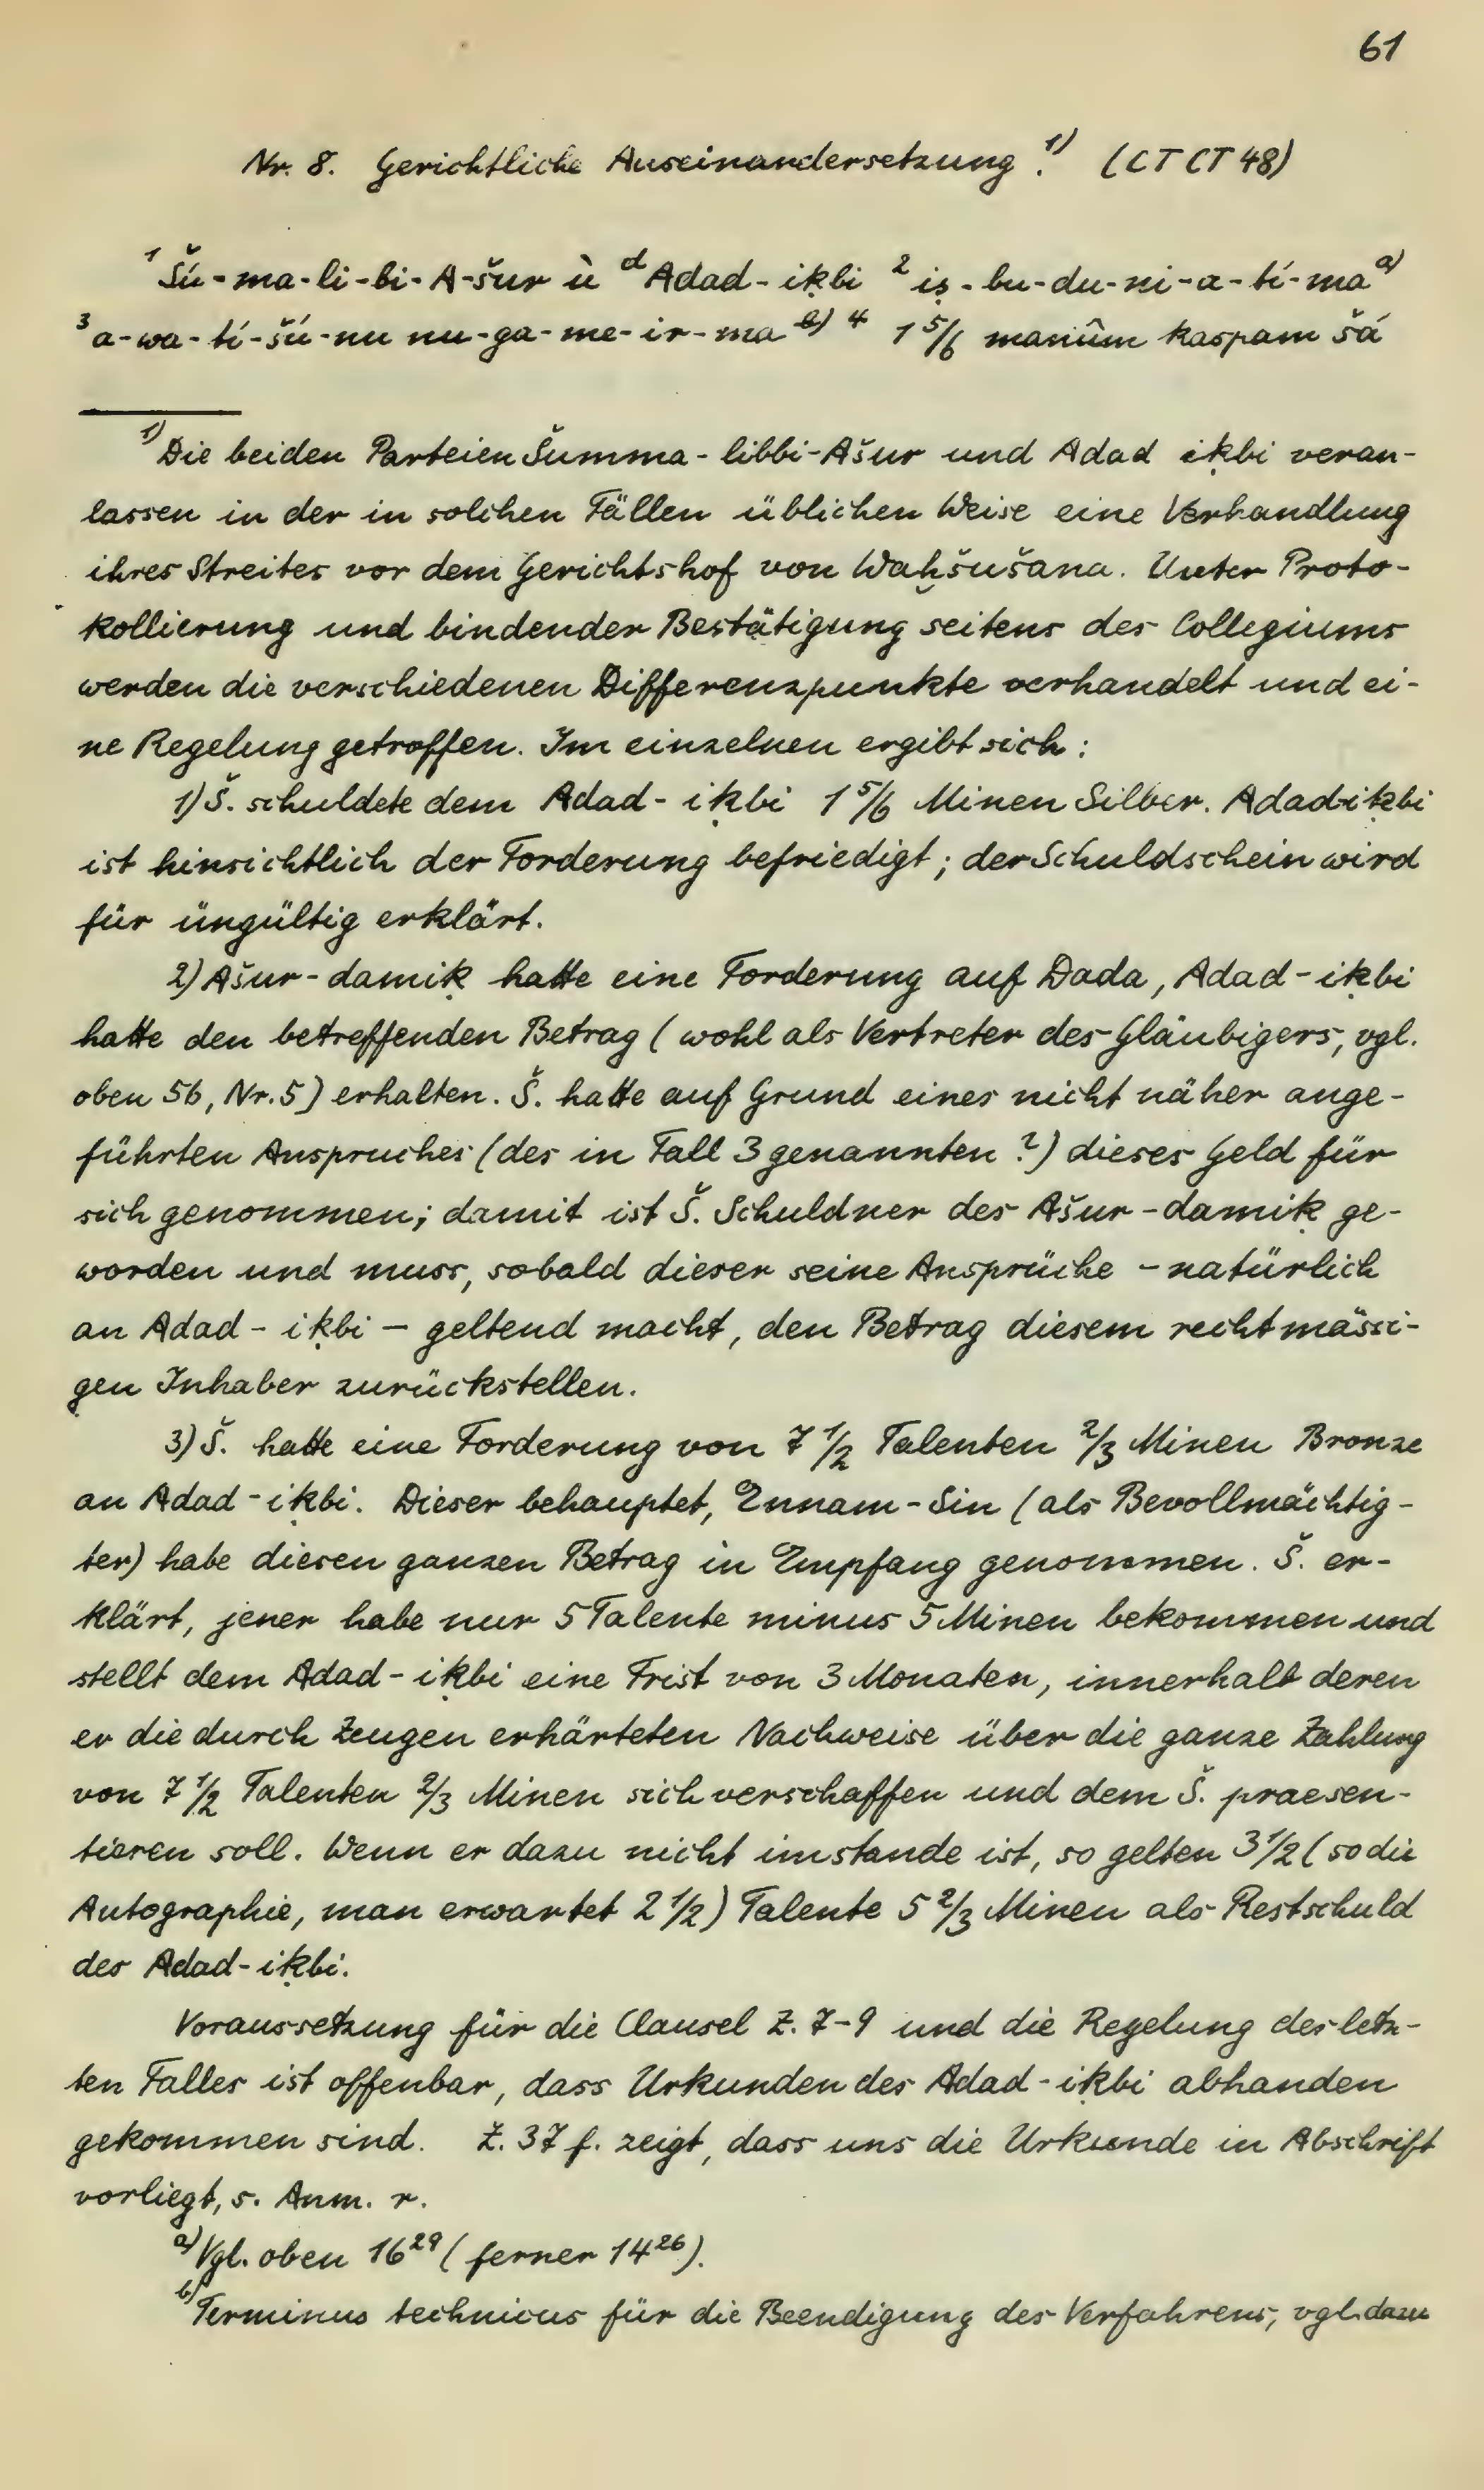 61
Nr. 8. Gerichtliche Auseinandersetzung.¹⁾ (CT CT 48)
¹ Šú-ma-li-bi-A-šur ù ᵈAdad-iḳbi ² iṣ-bu-du-ni-a-tí-maᵃ⁾
³ a-wa-tí-šú-nu nu-ga-me-ir-maᵇ⁾ ⁴ 1 5/6 manûm kaspam šá
¹⁾Die beiden Parteien Šumma-libbi-Ašur und Adad iḳbi veran-
lassen in der in solchen Fällen üblichen Weise eine Verhandlung
ihres Streites vor dem Gerichtshof von Waḫšušana. Unter Proto-
kollierung und bindender Bestätigung seitens des Collegiums
werden die verschiedenen Differenzpunkte verhandelt und ei-
ne Regelung getroffen. Im einzelnen ergibt sich:
1) Š. schuldete dem Adad-iḳbi 1 5/6 Minen Silber. Adad-iḳbi
ist hinsichtlich der Forderung befriedigt; der Schuldschein wird
für üngültig erklärt.
2) Ašur-damiḳ hatte eine Forderung auf Dada, Adad-iḳbi
hatte den betreffenden Betrag (wohl als Vertreter des Gläubigers, vgl.
oben 56, Nr. 5) erhalten. Š. hatte auf Grund eines nicht näher ange-
führten Anspruches (des in Fall 3 genannten?) dieses Geld für
sich genommen; damit ist Š. Schuldner des Ašur-damiḳ ge-
worden und muss, sobald dieser seine Ansprüche – natürlich
an Adad-iḳbi – geltend macht, den Betrag diesem rechtmässi-
gen Inhaber zurückstellen.
3) Š. hatte eine Forderung von 7 1/2 Talenten 2/3 Minen Bronze
an Adad-iḳbi. Dieser behauptet, Ennam-Sin (als Bevollmächtig-
ter) habe diesen ganzen Betrag in Empfang genommen. Š. er-
klärt, jener habe nur 5 Talente minus 5 Minen bekommen und
stellt dem Adad-iḳbi eine Frist von 3 Monaten, innerhalb deren
er die durch Zeugen erhärteten Nachweise über die ganze Zahlung
von 7 1/2 Talenten 2/3 Minen sich verschaffen und dem Š. praesen-
tieren soll. Wenn er dazu nicht imstande ist, so gelten 3 1/2 (so die
Autographie, man erwartet 2 1/2) Talente 5 2/3 Minen als Restschuld
des Adad-iḳbi.
Voraussetzung für die Clausel Z. 7-9 und die Regelung des letz-
ten Falles ist offenbar, dass Urkunden des Adad-iḳbi abhanden
gekommen sind. Z. 37 f. zeigt, dass uns die Urkunde in Abschrift
vorliegt, s. Anm. r.
ᵃ⁾Vgl. oben 16²⁹ (ferner 14²⁶).
ᵇ⁾Terminus technicus für die Beendigung des Verfahrens, vgl. dazu